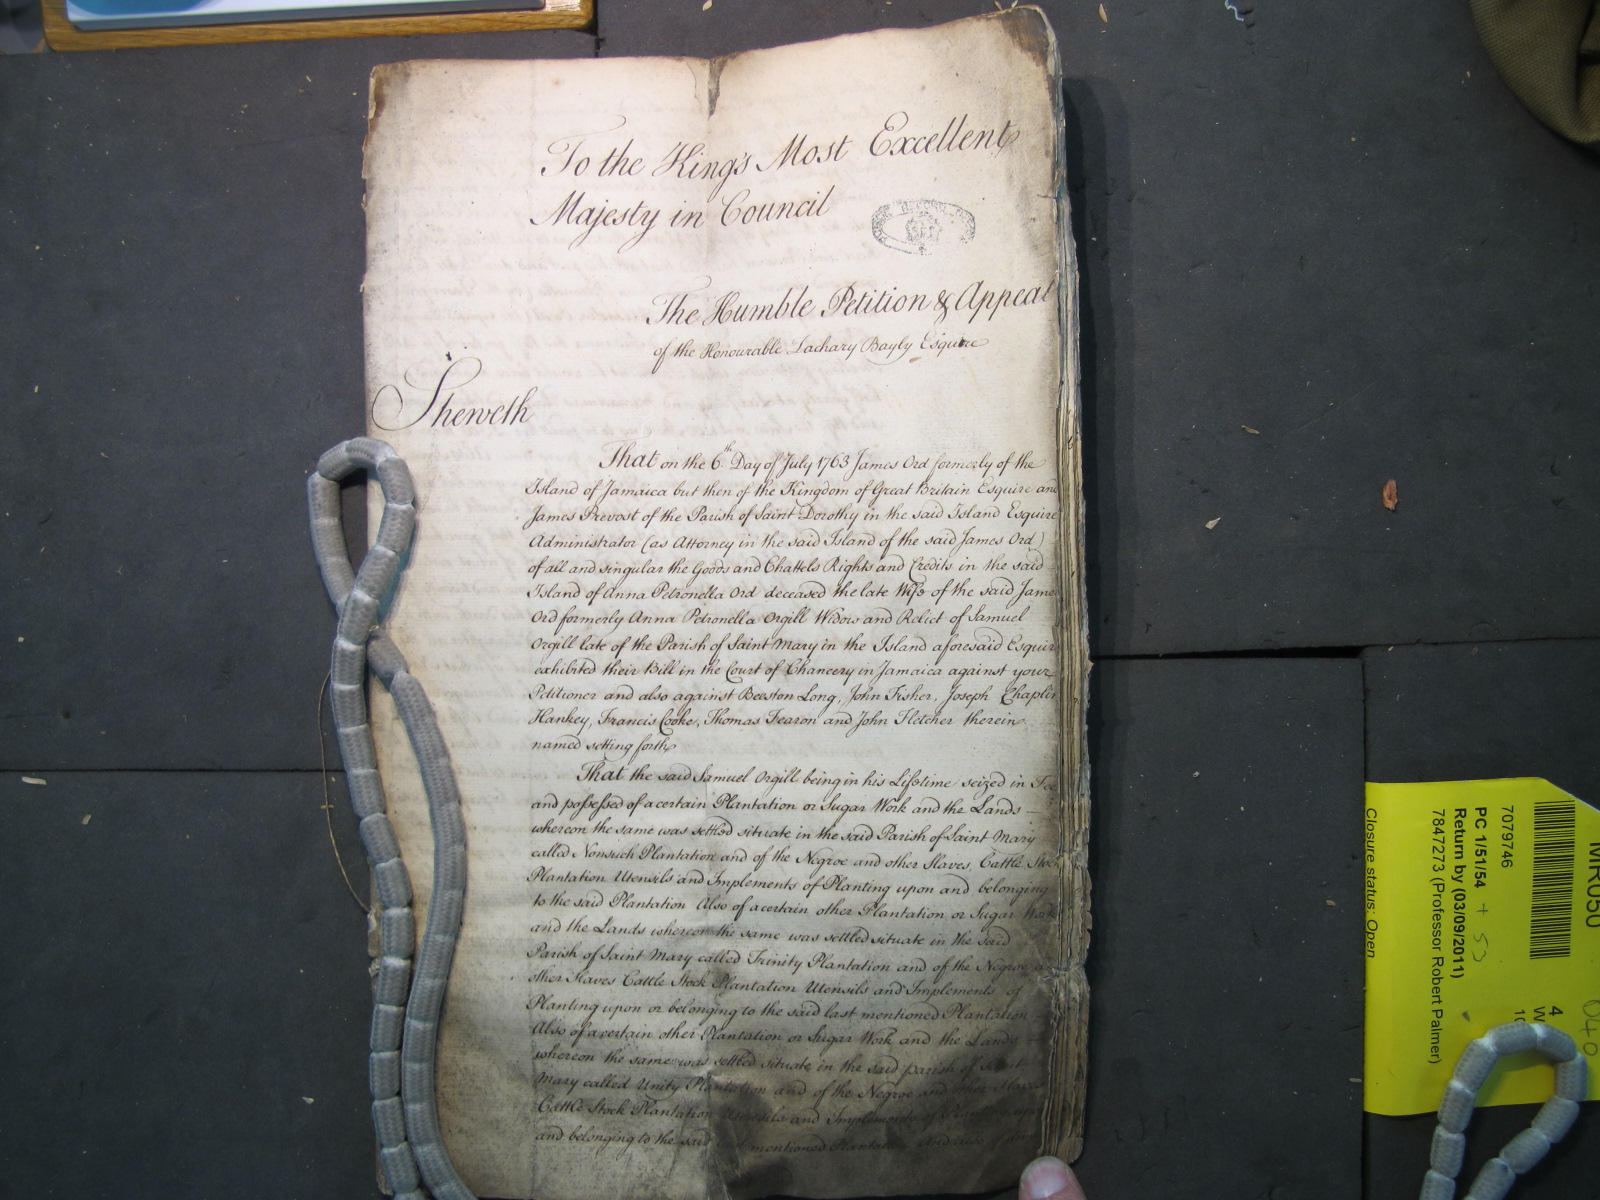 To the King's Most Excellent
Majesty in Council
The Humble Petition & Appeal
of the Honourable Zachary Bayly Esquire
Sheweth
That on the 6th Day of July 1763 James Ord formerly of the
Island of Jamaica but then of the Kingdom of Great Britain Esquire and
James Prevost of the Parish of Saint Dorothy in the said Island Esquire
Administrator (as Attorney in the said Island of the said James Ord)
of all and singular the Goods and Chattels Rights and Credits in the said
Island of Anna Petronella Ord deceased the late Wife of the said James
Ord formerly Anna Petronella Orgill Widow and Relict of Samuel
Orgill late of the Parish of Saint Mary in the Island aforesaid Esquire
exhibited their Bill in the Court of Chancery in Jamaica against your
Petitioner and also against Beeston Long, John Fisher, Joseph Chaplin
Hankey, Francis Cooke, Thomas Fearon and John Fletcher therein
named setting forth
That the said Samuel Orgill being in his Lifetime seized in Fee
and possessed of a certain Plantation or Sugar Work and the Lands
whereon the same was settled situate in the said Parish of Saint Mary
called Nonsuch Plantation and of the Negroe and other Slaves Cattle Stock
Plantation Utensils and Implements of Planting upon and belonging
to the said Plantation Also of a certain other Plantation or Sugar Work
and the Lands whereon the same was settled situate in the said
Parish of Saint Mary called Trinity Plantation and of the Negroe
other Slaves Cattle Stock Plantation Utensils and Implements of
Planting upon or belonging to the said last mentioned Plantation
Also of a certain other Plantation or Sugar Work and the Lands
whereon the same was settled situate in the said parish of Saint
Mary called Unity Plantation and of the Negroe and other Slaves
Cattle Stock Plantation Utensils and Implements of Planting upon
and belonging to the said last mentioned Plantation
MR050
7079746
PC 1/51/54 + 53
Return by (03/09/2011)
7847273 (Professor Robert Palmer)
Closure status: Open
4
W
10
040